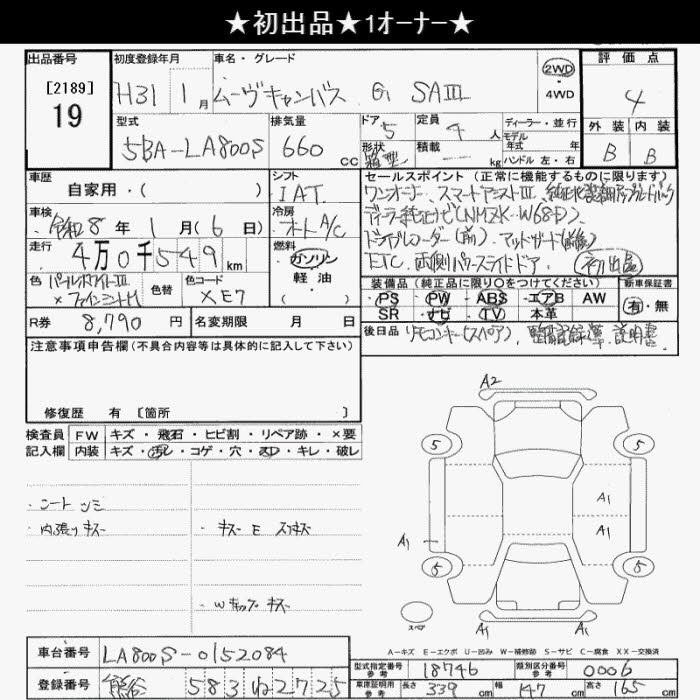 ★初出品★1オーナー★
出品番号
[2189]
19
初度登録年月
H31 1月
車名・グレード
ムーヴキャンバス G SAⅢ
2WD
・
4WD
評価点
4
外装 内装
B B
型式
5BA-LA800S
排気量
660 cc
ドア
5
形状
箱型
定員
4 人
積載
— kg
ディーラー・並行
モデル
年式 年
ハンドル 左・右
車歴
自家用・( )
シフト
IAT
車検
令和8年 1月(6日)
冷房
オートA/C
走行
4万0千549km
燃料
ガソリン
軽油
( )
色
パールホワイトⅢ
×ファインミントM
色替
色コード
XE7
R券
8,790円
名変期限 月 日
セールスポイント(正常に機能するものに限ります)
ワンオーナー、スマートアシストⅢ、純正化設用アップグレードパック
ディーラー純正ナビ(NMZK-W68D)、
ドライブレコーダー(前)、マッドガード(前後)
ETC、両側パワースライドドア、
初出品
装備品(純正品に限り〇をつけてください)
PS・PW・ABS・エアB AW
SR ・ナビ・ TV ・ 本革
新車保証書
有・無
後日品 リモコンキー(スペア)、整備記録簿、説明書
注意事項申告欄(不具合内容等は具体的に記入して下さい)
修復歴 有 [箇所 ]
検査員
記入欄
FW キズ・飛石・ヒビ割・リペア跡・×要
内装 キズ・汚レ・コゲ・穴・スレ・キレ・破レ
・シートシミ
・内張りキズ
・キズ E スリキズ
・Wキャップキズ
A2
5 5
A1
A1 A1
5 5
スペア
A1 A1
A-キズ E-エクボ U-凹み W-補修跡 S-サビ C-腐食 XX-交換済
車台番号
LA800S-0152084
登録番号
熊谷 583 ね 2725
型式指定番号
参考
18746
類別区分番号
参考
0006
車庫証明用
参考
長さ 339 cm 幅 147 cm 高さ 165 cm